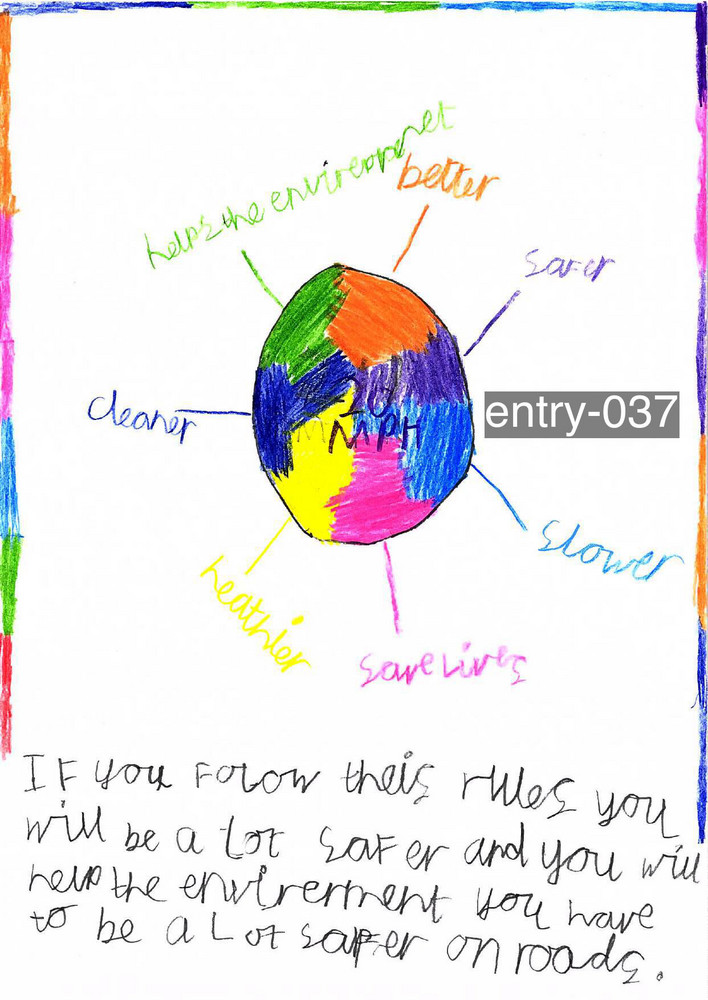 helps the envireopnet
better
safer
cleaner
20
MPH
entry-037
slower
heathier
save lives
IF you folow theis rules you
will be a lot safer and you will
help the envirerment you have
to be a lot safer on roads.